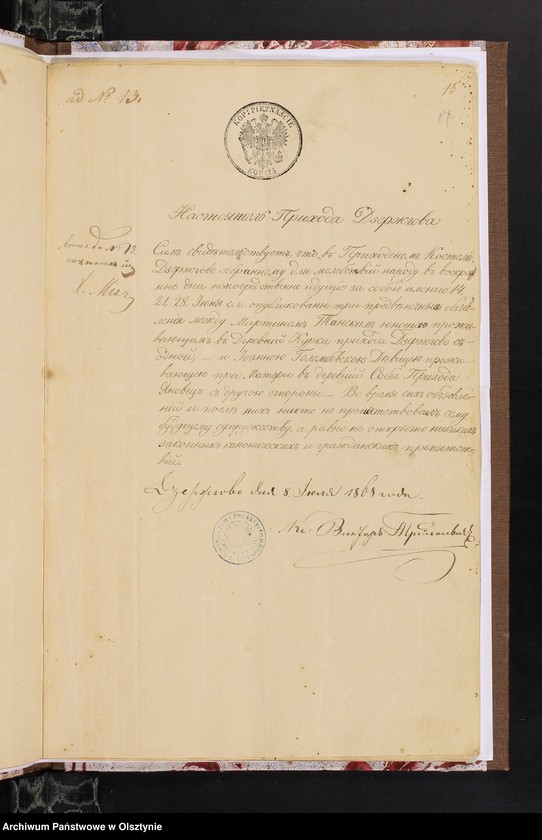 ad № 13.
15
17
KOP: PIĘTNAŚCIE
КОП: 15
Настоятель Прихода Дзержгова
Annex do № 13
X. Misz
Симъ свидѣтельствуетъ что въ Приходскомъ Костелѣ
Дзержгово собранному для молебствій народу въ воскрес
ные дни непосредственно идущіе за собою именно 14,
21, 28. Іюня с.г. опубликованы три предбрачныя объяв
ленія между Мартиномъ Танскимъ юношею прожи
вающимъ въ Деревнѣ Курки прихода Дзержгово съ
одной, — и Іоанною Голембевскою Дѣвицею прожи
вающею при Матери въ деревнѣ Прихода
Яновецъ съ другой стороны. — Во время сихъ объявле
ній и послѣ нихъ никто не препятствовалъ сему
будущему супружеству, а равно не открыто никакихъ
законныхъ каноническихъ и гражданскихъ препятст
вій.
Дзержгово дня 8 Іюля 1868 года.
Кс. Викторъ
Archiwum Państwowe w Olsztynie